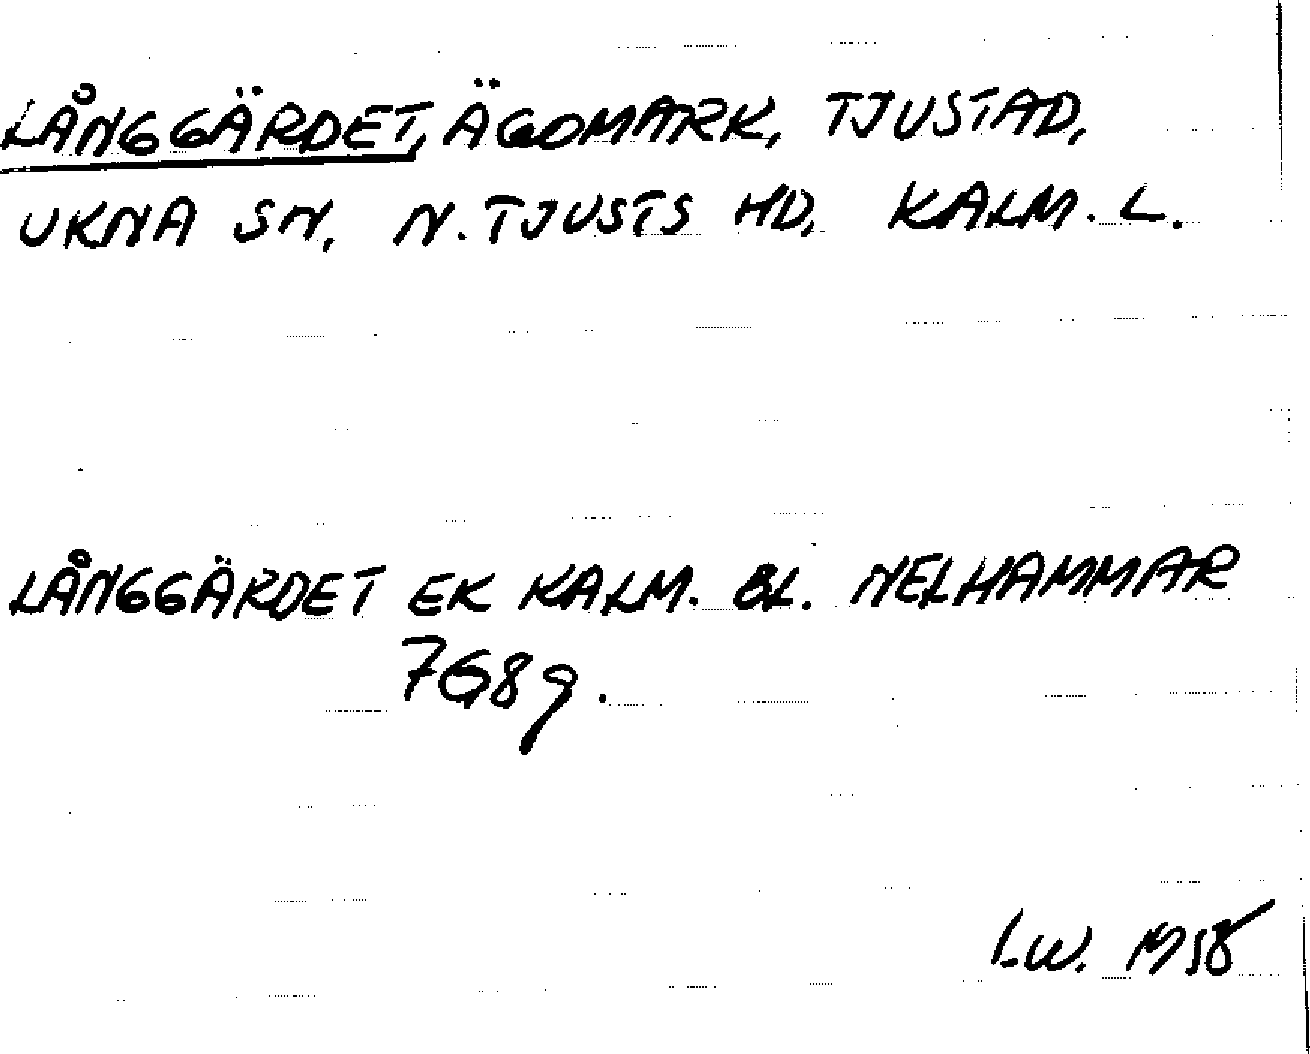 LÅNGGÄRDET, ÄGOMARK, TJUSTAD,
UKNA SN, N. TJUSTS HD, KALM. L.
LÅNGGÄRDET EK KALM. BL. NELHAMMAR
7G8g.
I.W. 1958